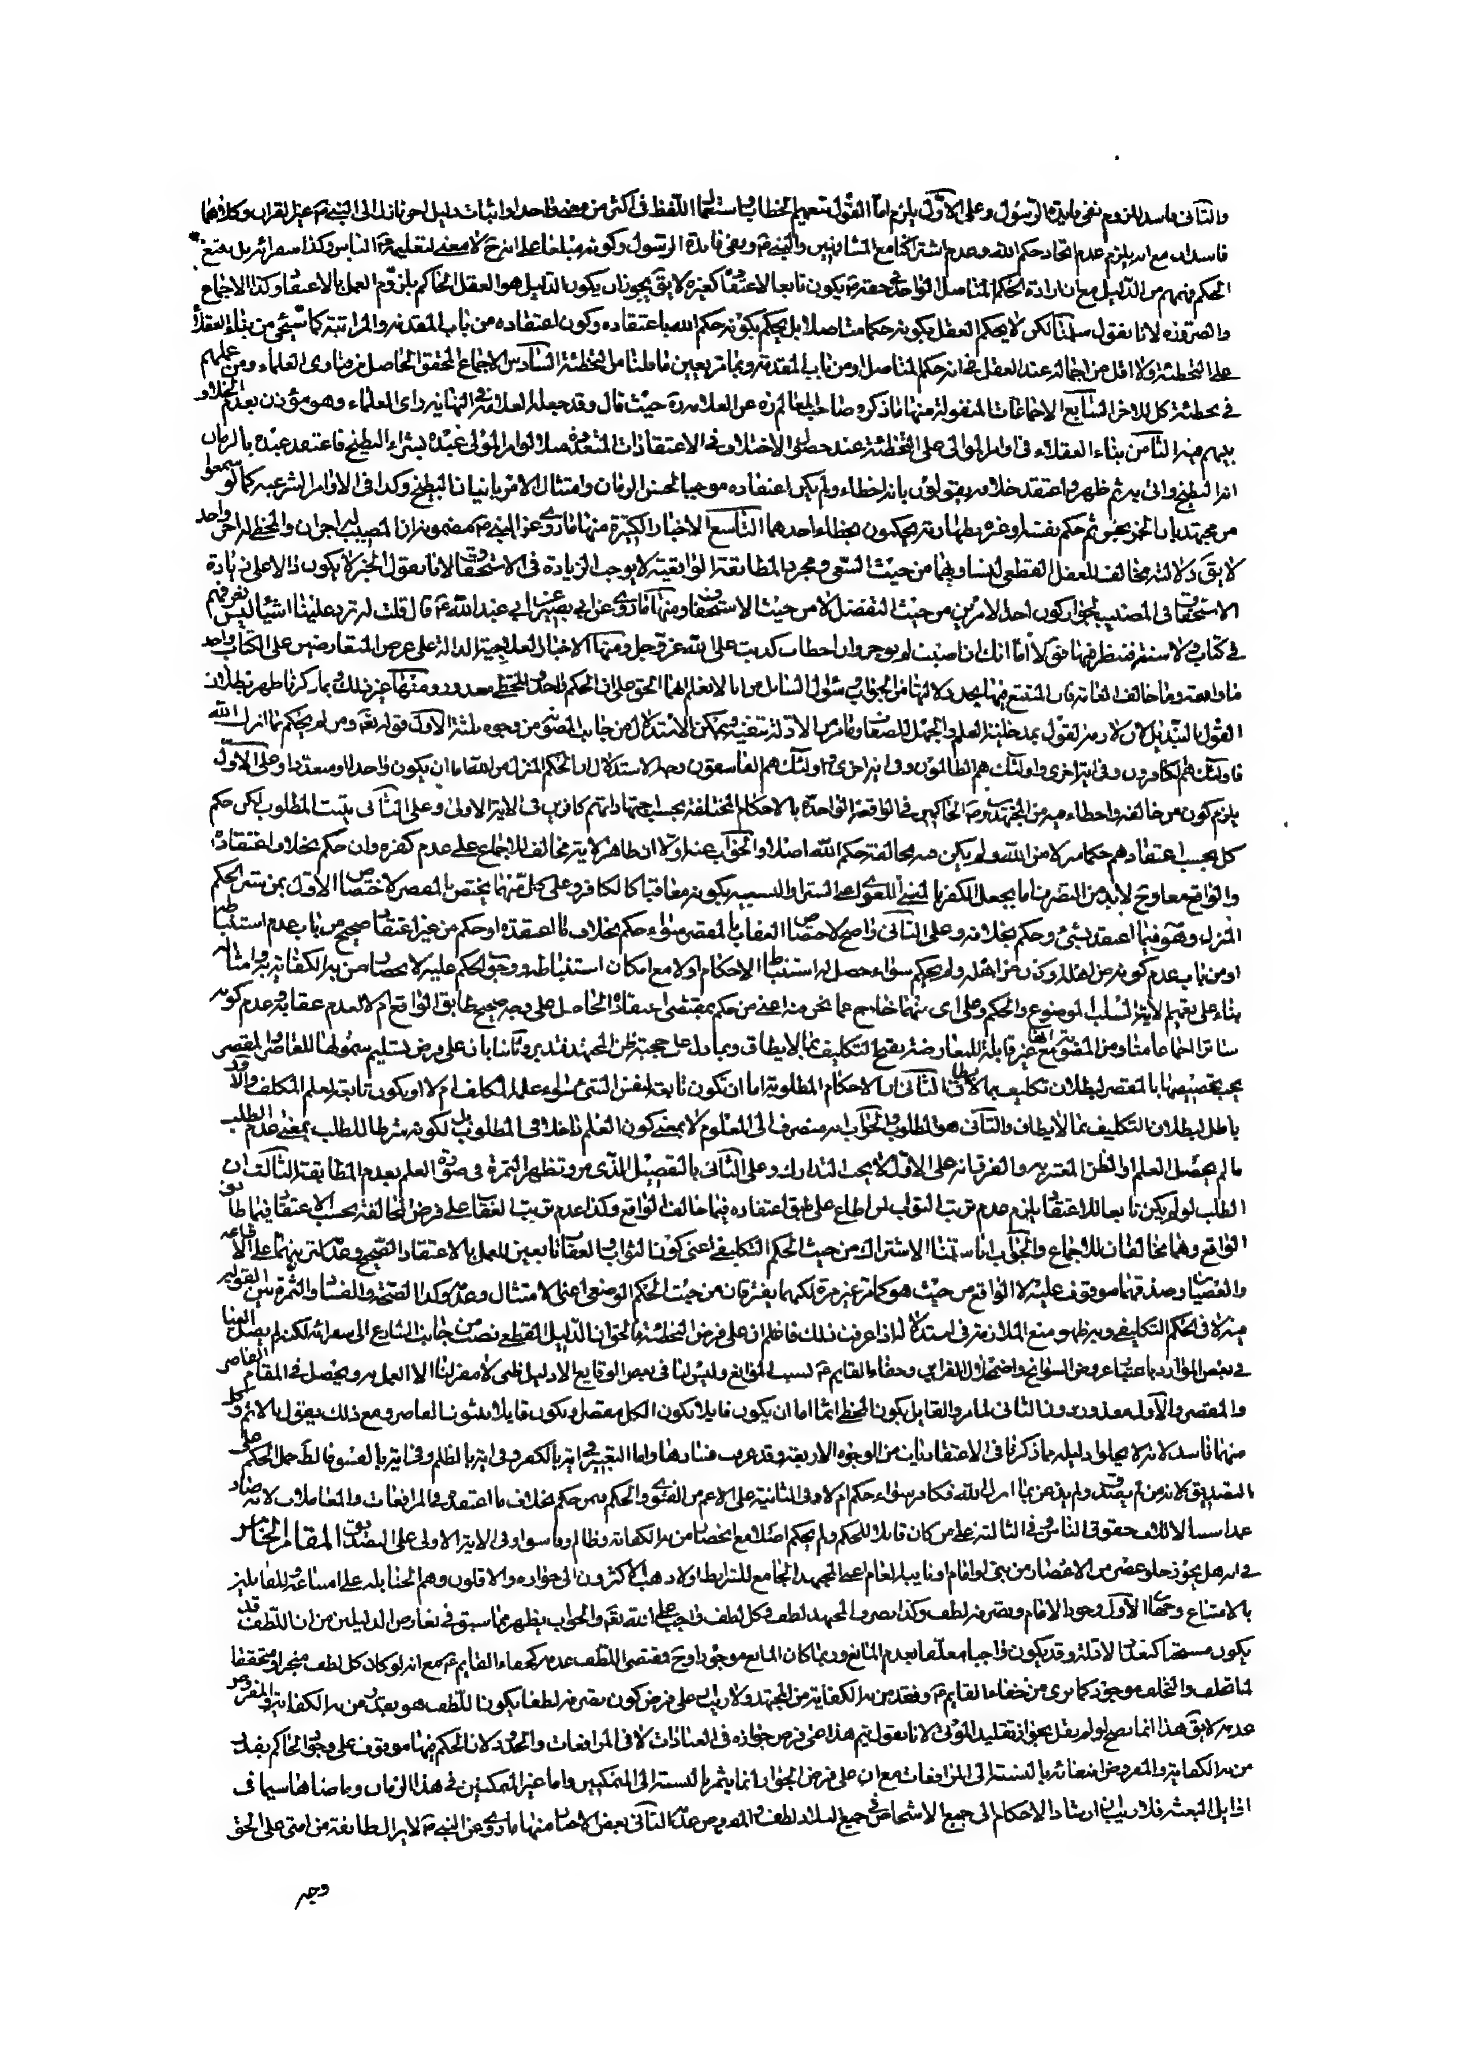 والثانى فاسد للزوم نفى فايدة الرسول وعلى الاول يلزم اما القول بتعميم الخطاب واستعمال اللفظ فى اكثر من معنى واحد او اثبات دليل اخر نازل الى النبى ص غير القران وكلاهما
فاسدان مع انه يلزم عدم اتحاد حكم الله وعدم اشتراكنا مع المشافهين والنبى ص ونفى فايدة الرسول وكونه مبلغا على انه ح لا معنى لتعليمه ص الناس وكذا سفرائه بل يمتنع
الحكم منهم من الدليل مع ان ارادة الحكم المتاصل الواحد فى حقه ص يكون تابعا لاعتقاد كغيره لا يق يجوز ان يكون الدليل هو العقل الحاكم بلزوم العمل بالاعتقاد وكذا الاجماع
والضرورة لانا نقول سلمنا لكن لا يحكم العقل بكونه حكما متاصلا بل يحكم بكونه حكم الله باعتقاده وكون اعتقاده من باب المقدمة والمراتبة كما سيجئ من بناء العقلاء
على التخطئة ولا اقل من اجماله عند العقل فى انه حكم المتاصل او من باب المقدمة وبما مر يعين ما قلنا من التخطئة السادس الاجماع المحقق الحاصل من فتاوى العلماء ومن عملهم
فى تخطئة كل للاخر السابع الاجماعات المنقولة منها ما ذكره صاحب المعالم ره عن العلامة ره حيث قال وقد جعله العلامة فى النهاية راى العلماء وهو مؤذن بعدم الخلاف
بينهم فيه الثامن بناء العقلاء فى اوامر الموالى على التخطئة عند حصول الاختلاف فى الاعتقادات المتعددة مثلا لو امر المولى عبده بشراء البطيخ فاعتقد عبده بالرمان
انه البطيخ واتى به ثم ظهر واعتقد خلافه يقولون بانه اخطاء ولم يكن اعتقاده موجبا لحسن الرمان وامتثال الامر باتيان البطيخ وكذا فى الاوامر الشرعية كما لو سمعوا
من مجتهد بان الخمر نجس ثم حكم بفسه او غيره بطهارته يحكمون بخطاء احدهما التاسع الاخبار الكثيرة منها ما روى عن النبى ص مضمونه ان للمصيب اجران وللمخطى اجر واحد
لا يق دلالته مخالف للعقل القطعى لتساويهما من حيث السعى ومجرد المطابقة الواقعية لا يوجب الزيادة فى الاستحقاق لانا نقول الخبر لا يكون دالا على زيادة
الاستحقاق فى المصيب لجواز كون احد الامرين من حيث التفضل لا من حيث الاستحقاق ومنها ما روى عن ابى بصير عن ابى عبد الله ع قال قلت له ترد علينا اشياء ليس نعرفها
فى كتاب ولا سنة فننظر فيها فق لا اما انك ان اصبت لم توجر وان اخطات كذبت على الله عز وجل ومنها الاخبار العلاجية الدالة على عرض المتعارضين على الكتاب واخذ
ما وافقه وما خالف العامة فان المتتبع فيها يجد دلالتها من الجواب وسؤال السائل من ابا لا نعلم ايهما الحق على ان الحكم واحد والمخطى معذور ومنها غير ذلك وبما ذكرنا ظهر بطلان
القول بالتبديل لان لازمه القول بمدخلية العلم والجهل للصفات وما مر من الادلة تنفيه ويمكن الاستدلال من جانب المصوبة من وجوه ثلثة الاول قوله تعه ومن لم يحكم بما انزل الله
فاولئك هم الكافرون وفى اية اخرى واولئك هم الظالمون وفى اية اخرى واولئك هم الفاسقون وجه الاستدلال ان الحكم المنزل من الله اما ان يكون واحدا او متعددا وعلى الاول
يلزم كون من خالفه واخطاء فيه من المجتهدين الحاكمين فى الواقعة الواحدة بالاحكام المختلفة بحسب اجتهاداتهم كافرين فى الاية الاولى وعلى الثانى يثبت المطلوب لكن حكم
كل بحسب اعتقادهم حكما منزلا من الله ولم يكن فيه مخالفة حكم الله اصلا والجواب عنه اولا ان ظاهر الاية مخالف للاجماع على عدم كفره وان حكم بخلاف اعتقاده
والواقع معا وح لابد من التصرف اما بجعل الكفر بالمعنى اللغوى اعنى الستر او التشبيه بكونه معاقبا كالكافر وعلى كل منهما يختص بالمقصر لاختصاص الاول بمن ستر الحكم
المنزل وهو فيما اعتقد بشئ وحكم بخلافه وعلى الثانى واضح لاختصاص العقاب بالمقصر سواء حكم بخلاف ما اعتقده او حكم من غير اعتقاد صحيح من باب عدم استنباطه
او من باب عدم كونه من اهله او كان من اهله ولم يحكم سواء حصل له استنباط الاحكام اولا مع امكان استنباطه ووجوب الحكم عليه لانحصار من به الكفاية به وامثاله
بناء على تعميم الاية لسلب الموضوع والحكم وعلى اى منهما خارج عما نحن فيه اعنى من حكم بمقتضى اعتقاده الحاصل على وجه صحيح طابق الواقع ام لا لعدم عقابه وعدم كونه
ساترا اجماعا منا ومن المصوبة مع انها غير قابلة للمعارضة بقطع التكليف بما لا يطاق وبما دل على حجية ظن المجتهد فتدبر وثانيا بان على فرض تسليم شمولها للقاصر والمقصر
يجب تخصيصها بالمقصر لبطلان تكليف بما لا يطاق الثانى ان الاحكام المطلوبة اما ان تكون تابعة لنفس الشئ سواء علم المكلف ام لا او يكون تابعة لعلم المكلف والاول
باطل لبطلان التكليف بما لا يطاق والثانى هو المطلوب والجواب انه منصرف الى المعلوم لا بمعنى كون العلم داخلا فى المطلوب بل لكونه شرطا للطلب بمعنى عدم الطلب
ما لم يحصل العلم او الظن المعتبر به والفرق انه على الاول لا يجب التدارك وعلى الثانى بالتفصيل الذى مر وتظهر الثمرة فى صورة العلم بعدم المطابقة الثالث ان
الطلب لو لم يكن تابعا للاعتقاد يلزم عدم ترتب الثواب لمن اطاع على طبق اعتقاده فيما خالف الواقع وكذا عدم ترتب العقاب على فرض المخالفة بحسب الاعتقاد فيما طابق
الواقع وهما مخالفان للاجماع والجواب انا سلمنا الاشتراك من حيث الحكم التكليفى اعنى كون الثواب والعقاب تابعين للعمل بالاعتقاد الصحيح وعدمه لترتبهما على الاطاعة
والعصيان وصدقهما موقوف عليه لا الواقع من حيث هو كما مر غير مرة لكنهما يفترقان من حيث الحكم الوضعى اعنى الامتثال وعدمه وكذا الصحة والفساد والثمرة بين القولين
فيه لا فى الحكم التكليفى وبه ظهر منع الملازمة فى استدلاله اذا عرفت ذلك فاعلم ان على فرض التخطئة فالحق ان الدليل القطعى نصب من جانب الشارع الى سفرائه لكن لم يصل الينا
فى بعض الموارد باعتبار عروض السوانح واضمحلال القراين وخفاء القايم ع بسبب الموانع وليس لنا فى بعض الوقايع الا دليل ظنى لا مفر لنا الا العمل به ويحصل فى المقام القاصر
والمقصر والاول معذور دون الثانى لما مر والقايل بكون المخطى اثما اما ان يكون قايلا بكون الكل مقصر او يكون قايلا بثبوت القاصر ومع ذلك يقول بالاثم وكل
منهما فاسد لانه لا يخلو دليله بما ذكرنا فى الاعتقاديات من الوجوه الاربعة وقد عرفت فسادها واما التعبير فى اية بالكفر وفى اية بالظلم وفى اية بالفسق فالظ حمل الحكم على
التصديق لانه من لم يعتقد ولم يذعن بما انزل الله فكافر سواء حكم ام لا وفى الثانية على الاعم من الفتوى والحكم فمن حكم بخلاف ما اعتقده فى المرافعات والمعاملات لانه صار
سببا لاتلاف حقوق الناس وفى الثالثة على من كان قابلا للحكم ولم يحكم اصلا مع انحصار من به الكفاية وظالم وفاسق وفى الاية الاولى على التصديق المقام الخامس
فى انه هل يجوز خلو عصر من الاعصار من نبى او امام او نايبه العام اعنى المجتهد الجامع للشرايط اولا ذهب الاكثرون الى جوازه والاقلون وهم الحنابلة على امتناعه للقائلين
بالامتناع وجوه الاول وجود الامام وتصرفه لطف وكذا تصرف المجتهد لطف وكل لطف واجب على الله تعه والجواب يظهر مما سبق فى تعارض الدليلين من ان اللطف قد
يكون مستحبا كتعدد الادلة وقد يكون واجبا معلقا بعدم المانع وربما كان المانع موجودا وح مقتضى اللطف عدمه كخفاء القايم ع مع انه لو كان كل لطف منجزا ومتحققا
لما تخلف والتخلف موجود كما نرى من خفاء القايم ع وفقد من به الكفاية من المجتهد ولا ريب ان على فرض كون تصرفه لطفا يكون اللطف هو بقدر من به الكفاية والمفروض
عدمه لا يق هذا انما يصح لو لم يقل بجواز تقليد الموتى لانا نقول يتم هذا على فرض جوازه فى العبادات لا فى المرافعات والحدود لان الحكم فيها موقوف على وجود الحاكم بقدر
من به الكفاية والمفروض انتفائه بالنسبة الى المرافعات مع ان على فرض الجواز انما يثمر بالنسبة الى المتمكنين واما غير المتمكنين فى هذا الزمان وما ضاهاه سيما فى
اوايل البعثة فلا ريب ان ارشاد الاحكام الى جميع الاشخاص فى جميع البلاد لطف والمفروض عدمه الثانى بعض الاخبار منها ما روى عن النبى ص لا يزال طايفة من امتى على الحق
وجه